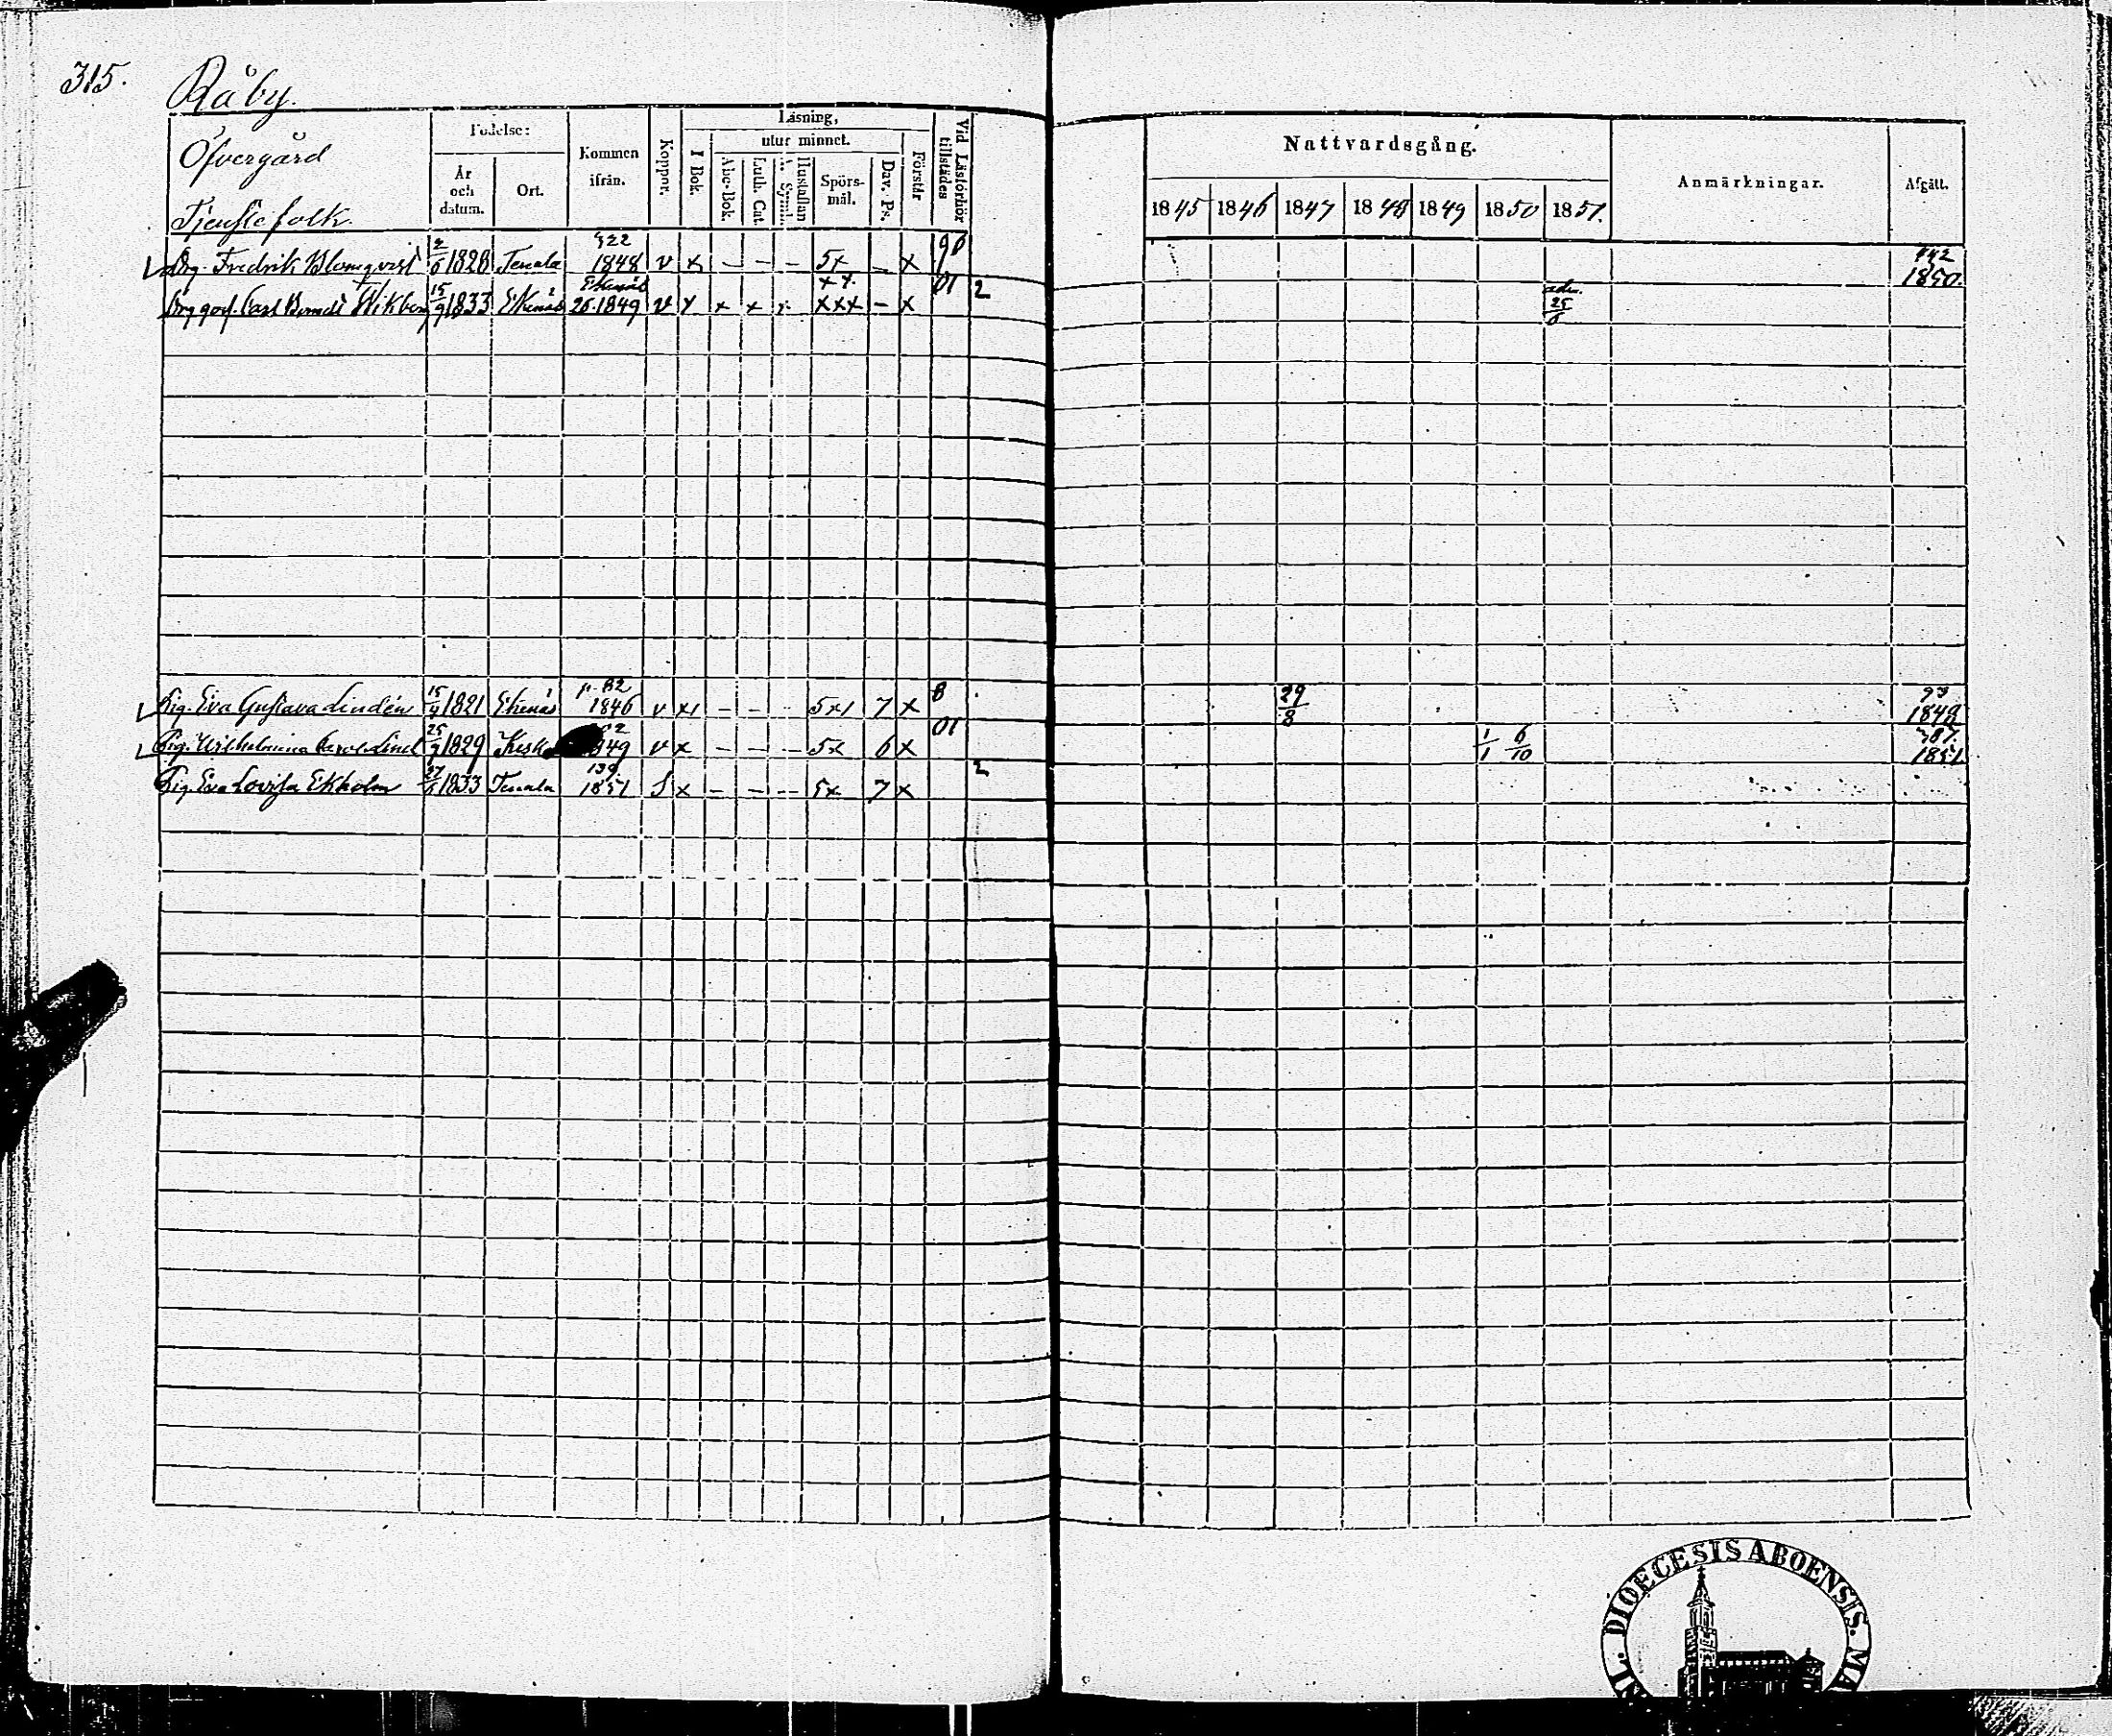 315. Råby.
Öfvergård
Tjenstefolk.
Födelse:
År och datum.
Ort.
Kommen ifrån.
Koppor.
Läsning,
I Bok.
utur minnet.
Abc-Bok.
Luth. Cat.
Hustaflan
Spörs-mål.
Dav. Ps.
Förstår
Vid Läsförhör tillstädes
Nattvardsgång.
1845 1846 1847 1848 1849 1850 1851.
Anmärkningar.
Afgått.
Drg. Fredrik Blomqvist 2/6 1828 Tenala 322 1848 v x – – – 5x – x 90 142 1850.
Drg gos. Carl Berndt Wikberg 15/9 1833 Ekenäs Ekenäs 26. 1849 v x x x x xx. xxx – x 01 2 adm. 25/6
Pig. Eva Gustava Lindén 15/9 1821 Ekenäs p. 82 1846 v x1 – – – 5x1 7 x 8 29/8 93 1848
Pig. Wilhelmina Carol. Lind 25/9 1829 Kisko 1849 v x – – – 5x 6 x 01 1/1 6/10 387. 1851
Pig. Eva Lovisa Ekholm 27/5 1833 Tenala 139 1851 S x – – – 5x 7 x 2
DIOECESIS ABOENSIS. MA